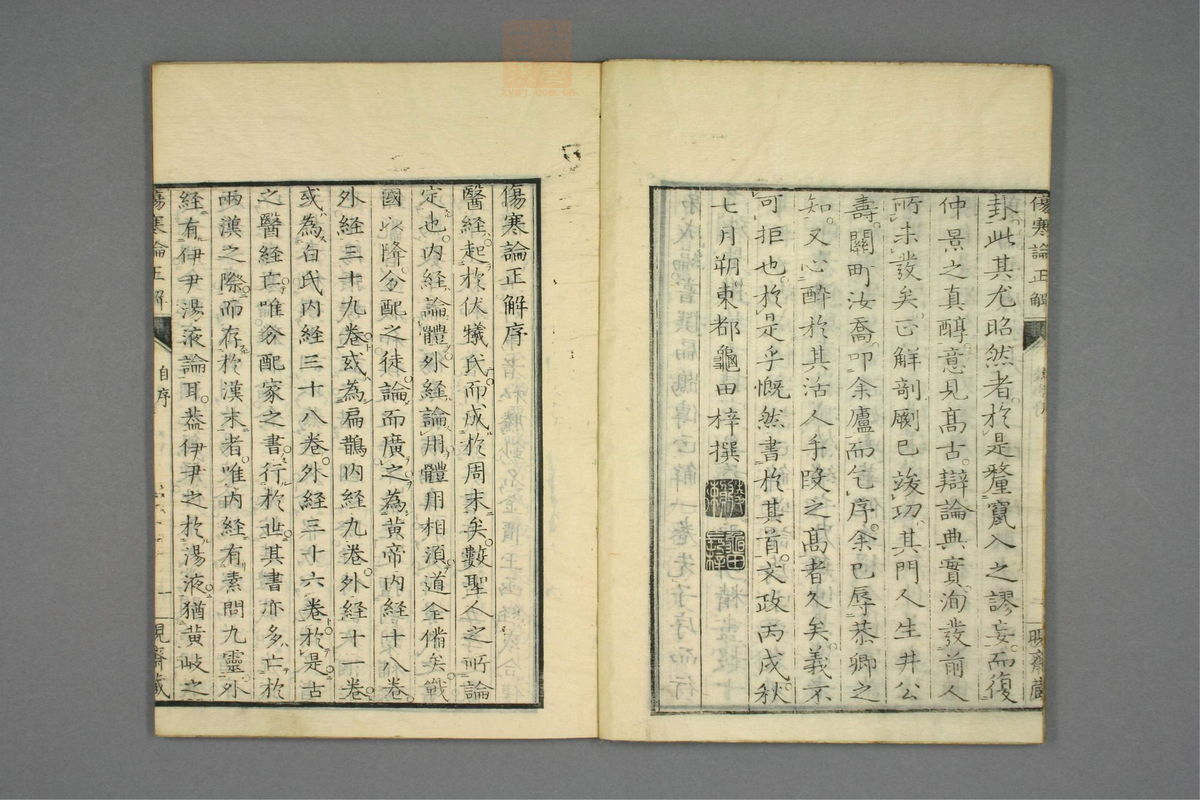 卦此其尤昭然者於是釐竄入之謬妄而復
仲景之真醇意見高古辯論典實洵發前人
所未發矣正解剞劂已竣功其門人生井公
壽關町汝喬叩余廬而乞序余已辱恭卿之
知又心醉於其活人手段之高者久矣義不
可拒也於是乎慨然書於其首文政丙戌秋
七月朔東都龜田梓撰
龜田
長梓
傷寒論正解
傷寒論正解序
醫經起於伏犧氏而成於周末矣數聖人之所論
定也内經論體外經論用體用相須道全備矣戰
國以降分配之徒論而廣之為黃帝内經十八卷
外經三十九卷或為扁鵲内經九卷外經十一卷
或為白氏内經三十八卷外經三十六卷於是古
之醫經亡唯分配家之書行於世其書亦多亡於
兩漢之際而存於漢末者唯内經有素問九靈外
経有伊尹湯液論耳蓋伊尹之於湯液猶黃岐之
傷寒論正解
自序
一